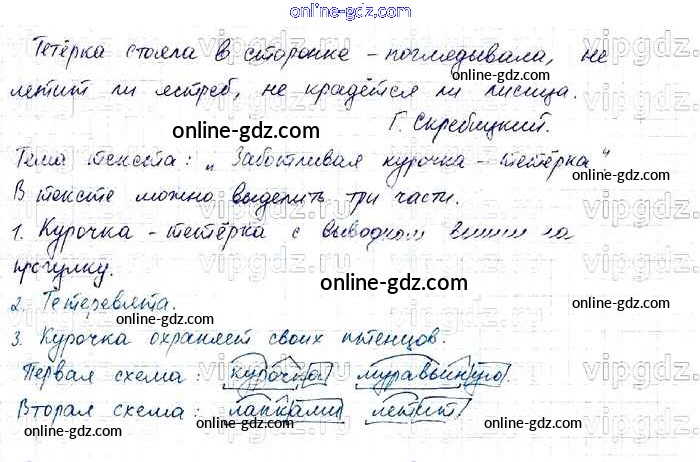 online-gdz.com
Тетёрка стояла в сторонке - поглядывала, не
летит ли ястреб, не крадётся ли лисица.
Г. Скребицкий.
online-gdz.com
Тема текста: „Заботливая курочка - тетёрка“
online-gdz.com
В тексте можно выделить три части.
1. Курочка - тетёрка с выводком вышла на
прогулку.
online-gdz.com
2. Тетеревята.
online-gdz.com
3. Курочка охраняет своих птенцов.
online-gdz.com
Первая схема: курочка муравьиную.
online-gdz.com
Вторая схема: лапками летит
online-gdz.com online-gdz.com online-gdz.com